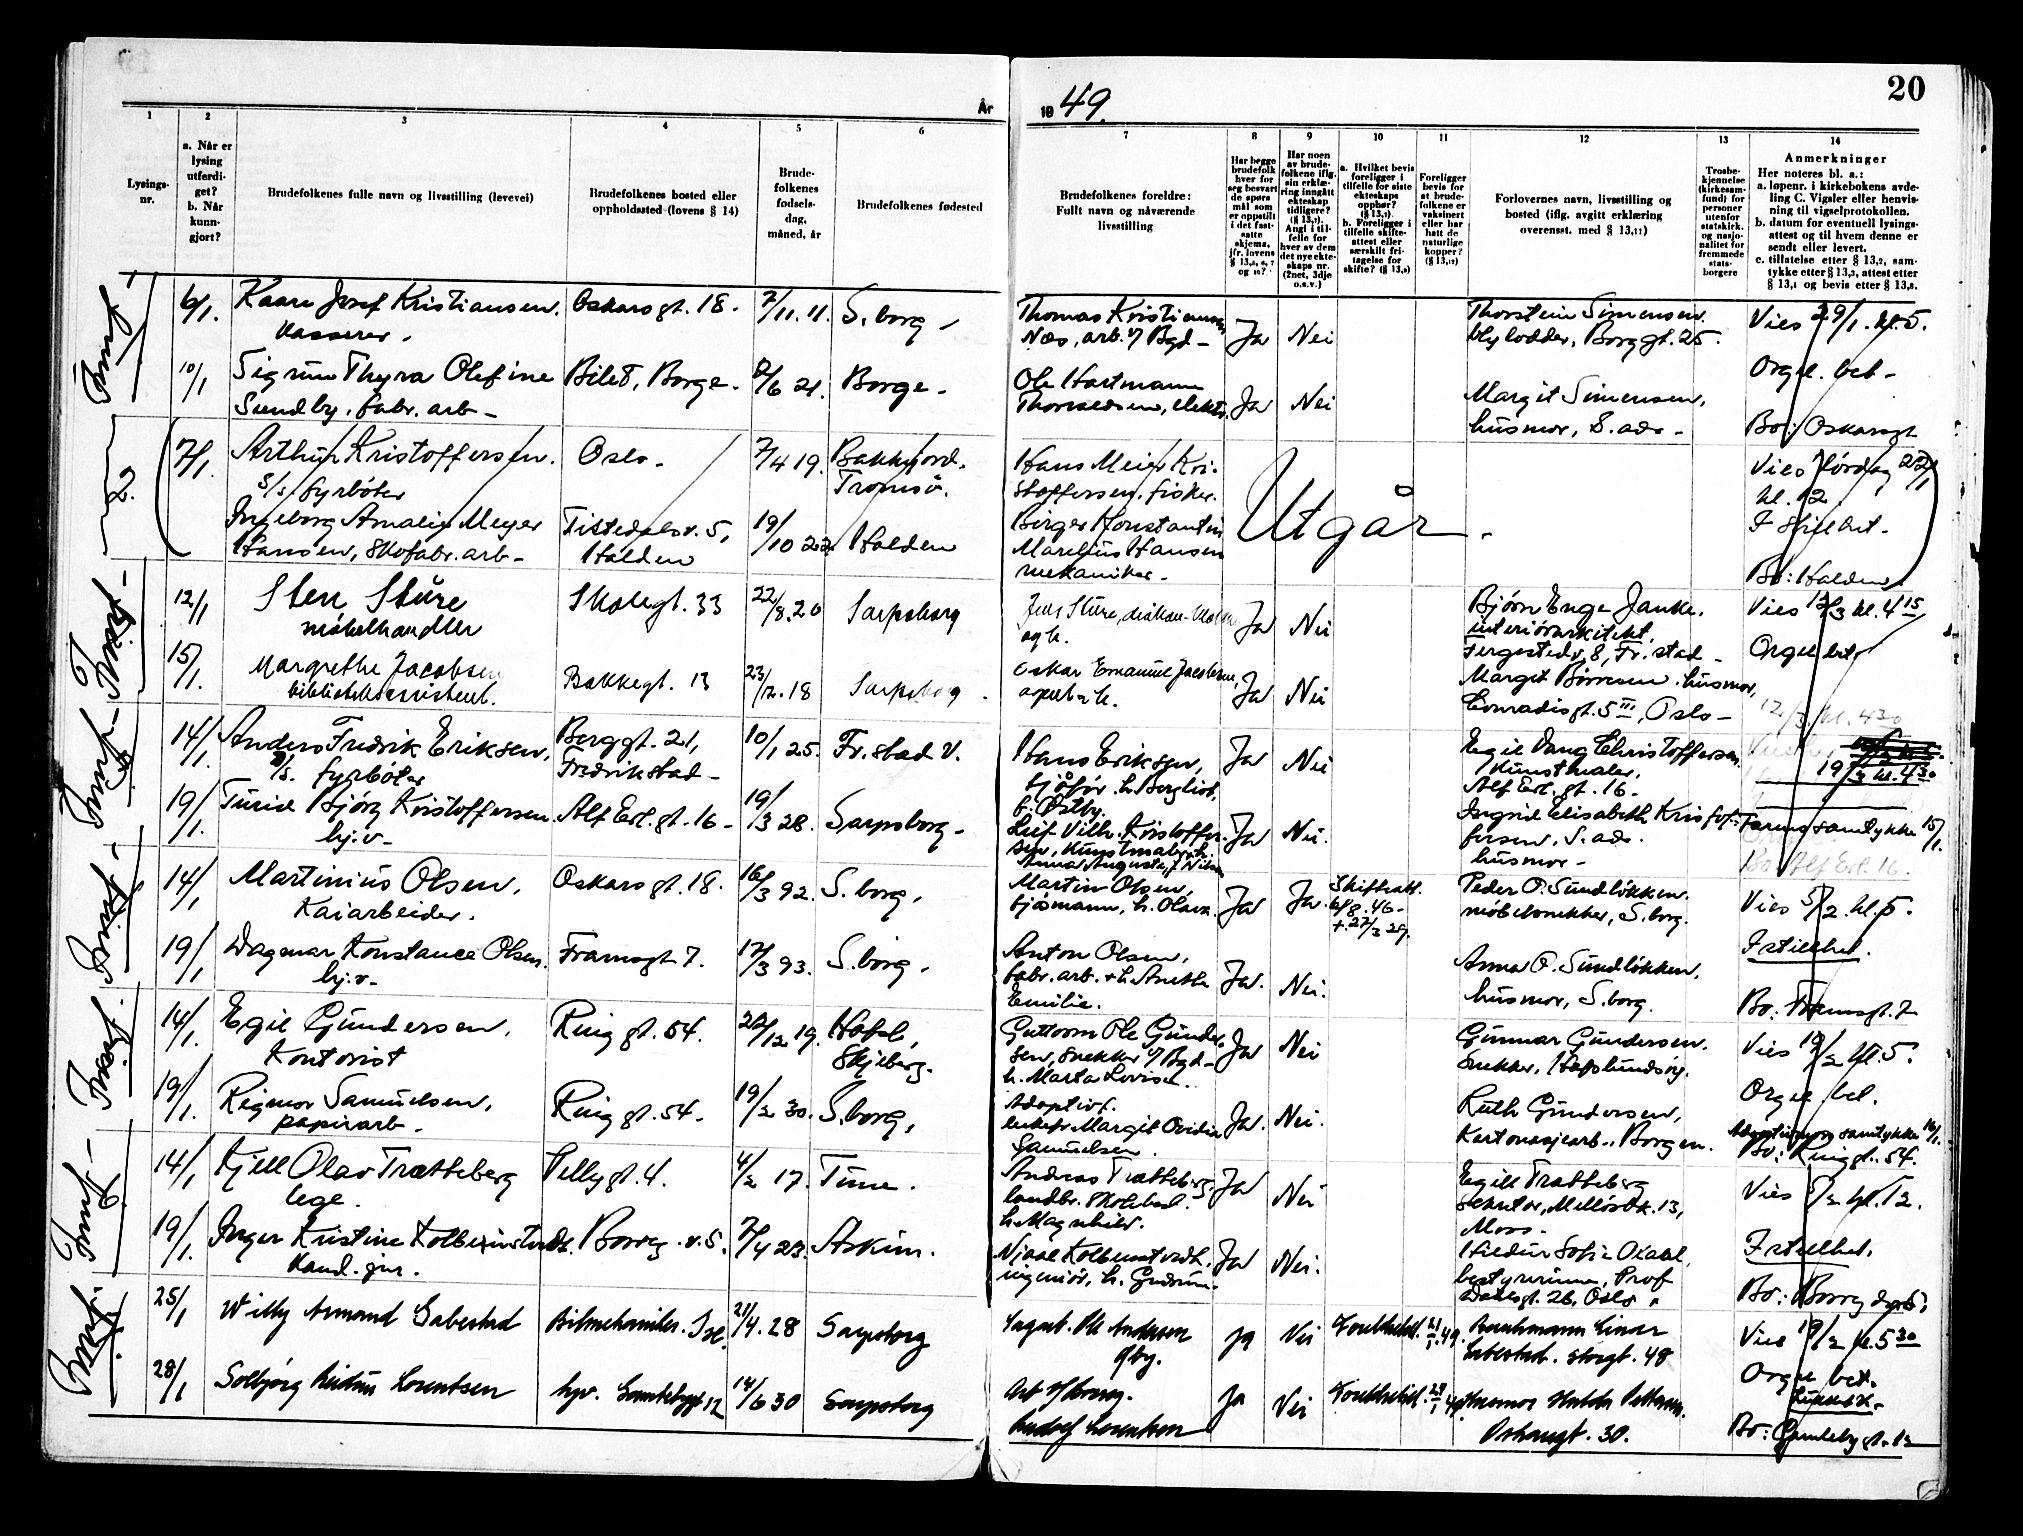 20
År
19 49.
1
2
3
4
5
6
7
8
9
10
11
12
13
14
Lysings-
nr.
a. Når er
lysing
utferdi-
get?
b. Når
kunn-
gjort?
Brudefolkenes fulle navn og livsstilling (levevei)
Brudefolkenes bosted eller
oppholdssted (lovens § 14)
Brude-
folkenes
fødsels-
dag,
måned, år
Brudefolkenes fødested
Brudefolkenes foreldre:
Fullt navn og nåværende
livsstilling
Har begge
brudefolk
hver for
seg besvart
de spørs-
mål som
er oppstilt
i det fast-
satte
skjema,
jfr. lovens
Har noen
av brude-
folkene iflg.
sin erklæ-
ring inngått
ekteskap
tidligere?
(§ 13,7).
Angi i til-
felle for
hver av dem
det nye ekte-
skaps nr.
(2net, 3dje
o.s.v.)
a. Hvilket bevis
foreligger i
tilfelle for siste
ekteskaps
opphør?
(§ 13,7).
b. Foreligger i
tilfelle skifte-
attest eller
særskilt fri-
tagelse for
skifte? (§ 13,9)
Foreligger
bevis for
at brude-
folkene er
vaksinert
eller har
hatt de
naturlige
kopper?
(§ 13,12)
Forlovernes navn, livsstilling og
bosted (iflg. avgitt erklæring
overensst. med § 13,11)
Trosbe-
kjennelse
(kirkesam-
fund) for
personer
utenfor
statskirk.
og nasjo-
nalitet for
fremmede
stats-
borgere
Anmerkninger
Her noteres bl. a.:
a. løpenr. i kirkebokens avde-
ling C. Vigsler eller henvis-
ning til vigselprotokollen.
b. datum for eventuell lysings-
attest og til hvem denne er
sendt eller levert.
c. tillatelse etter § 13,2, sam-
tykke etter § 13,3, attest etter
§ 13,1 og bevis etter § 13,8.
6/1. Kaare Josef Kristiansen. Oskarsgt. 18. 7/11. 11. S. borg,
kasserer.
Thomas Kristiansen
Næs, arb. v/ Bgd - Ja Nei
Thorstein Simensen.
blylodder, Borggt. 25.
Vies 29/1. kl. 5.
10/1 Sigrun Thyra Olefine Bilet, Borge. /6 21. Borge.
Sundby. fabr. arb -
Ole Hartmann
Ja Nei
Margit Simensen,
husmor, S. ads -
Orgel. bet -
Bo: Oskarsgt
2.
7/1. Arthur Kristoffersen. Oslo. 7/4 19. Bakkfjord.
s/s fyrbøter Tromsø.
Hans Meier Kri-
stoffersen, fisker.
Utgår.
Vies lørdag
kl. 12
I still het -
Ingeborg Amalie Meyer Tistedalsv. 5, 19/10 22 Halden
Hansen, skofabr. arb - Halden
Birger Konstantin
Marelius Hansen
mekaniker -
Bo: Halden
12/1 Sten Sture Skolegt. 33 22/8. 20 Sarpsborg
møbelhandler
Jens Sture,
og h. Ja Nei
Bjørn Enge Janke.
interiørarkitekt,
8, Fr. stad -
Vies 12/3 kl. 4 15
Orgel bet
15/1. Margrethe Jacobsen Bakkegt. 13 23/12. 18 Sarpsborg.
biblioteksassistent.
Oskar Emanuel Jacobsen,
Ja Nei
Margit Børresen. husmor,
Conradisgt. 5 III, Oslo -
14/1. Anders Fredrik Eriksen, Borggt. 21, 10/1 25. Fr. stad V.
s/s. fyrbøter Fredrikstad -
Hans Eriksen,
sjåfør. h. Bergliot,
f. Østby. Ja Nei
Egil Vang Christoffersen.
Kunstmaler.
Alf Erl. gt. 16 -
12/3. kl. 4 30
19/3 kl. 4 30
19/1. Turid Bjørg Kristoffersen Alf Erl. gt. 16 - 19/3 28. Sarpsborg -
hj. v -
Leif Vilh. Kristoffer-
sen, Kunstmaler, h.
Anna Augusta, f. Nilsen Ja Nei.
Ingrid Elisabeth Kristof-
fersen, S. ads.
husmor -
Farens samtykke 15/1.
Bo: Alf Erl. 16.
14/1 Martinius Olsen, Oskarsgt. 18. 16/3 92. S. borg,
Kaiarbeider.
Martin Olsen,
sjømann, h. Olava. Ja Ja. Skifteatt.
/8. 46 -
+. 27/3 29.
Peder O. Sundløkken.
møbelsnekker, S. borg.
Vies 5/2. kl. 5.
I stillhet.
19/1 Dagmar Konstance Olsen. Framsgt 7. 17/3 93. S. borg,
hj. v -
Anton Olsen,
fabr. arb. + h. Anette
Emilie. Ja. Nei.
Anna O. Sundløkken,
husmor, S. borg.
Bo: Framsgt. 7
14/1 Egil Gundersen, Ringgt. 54. /12 19. Hafsl,
Kontorist Skjeberg.
Guttorm Ole Gunder-
sen, snekker v/ Bgd -
h. Marta Lovise. Ja Nei
Gunnar Gundersen.
snekker, Hafslundsøy.
Vies 19/2 kl. 5.
Orgel bet.
19/1. Rigmor Samuelsen, Ringgt. 54 - 19/2 30. S. borg,
papirarb -
Adoptivf.
enkefr. Margit Ovidia
Samuelsen. Ja. Nei.
Ruth Gundersen,
Kartonasjearb -, Borgen.
samtykke
Bo: Ringgt. 54.
14/1 Kjell Olav Trætteberg Pellygt. 4. 4/2 17. Tune.
lege.
Andreas Trætteberg,
landbr. skolebest.
h. Magnhild. Ja Nei
Egill Trætteberg
sekretær, Mellösvk. 13,
Moss.
Vies 5/2 kl. 12.
I stillhet.
19/1. Inger Kristine Kolbenstvedt. Borreg. v. 5. 7/4 23. Askim.
Kand. jur.
Njaal Kolbenstvedt,
ingeniør, h. Gudrun. Ja Nei.
Hedur Sofie
bestyrerinne, Prof
Dahlsgt. 26, Oslo.
Bo: Borreg
25/1 Willy Armand Gabestad Bilmekaniker. 21/4. 28 Sarpsborg
Andersen
Ja Nei
storgt. 48
Vies 19/2 kl. 5 30
Orgel bet.
28/1 Solbjørg Reidun Lorentsen hjv. 12 14/6 30 Sarpsborg
Rudolf Lorentsen Ja Nei
Oskarsgt. 30.
Bo: Gamlebygt. 12